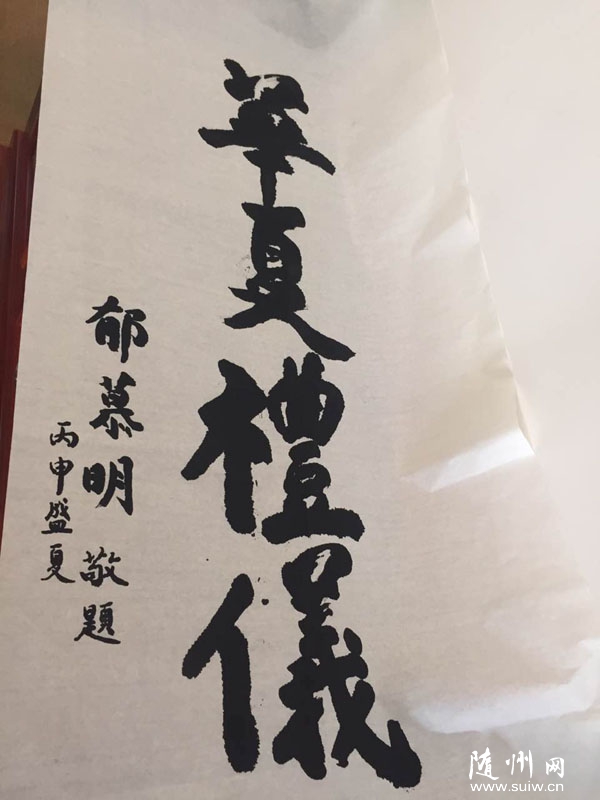 華夏禮儀
郁慕明 敬題
丙申盛夏
随州网
www.suiw.cn